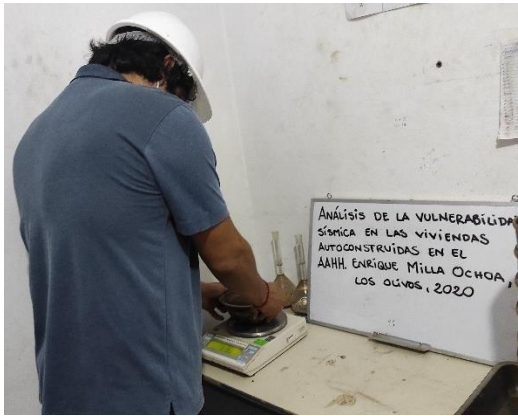 ANÁLISIS DE LA VULNERABILIDA
SÍSMICA EN LAS VIVIENDAS
AUTOCONSTRUIDAS EN EL
AAHH. ENRIQUE MILLA OCHOA,
LOS OLIVOS, 2020